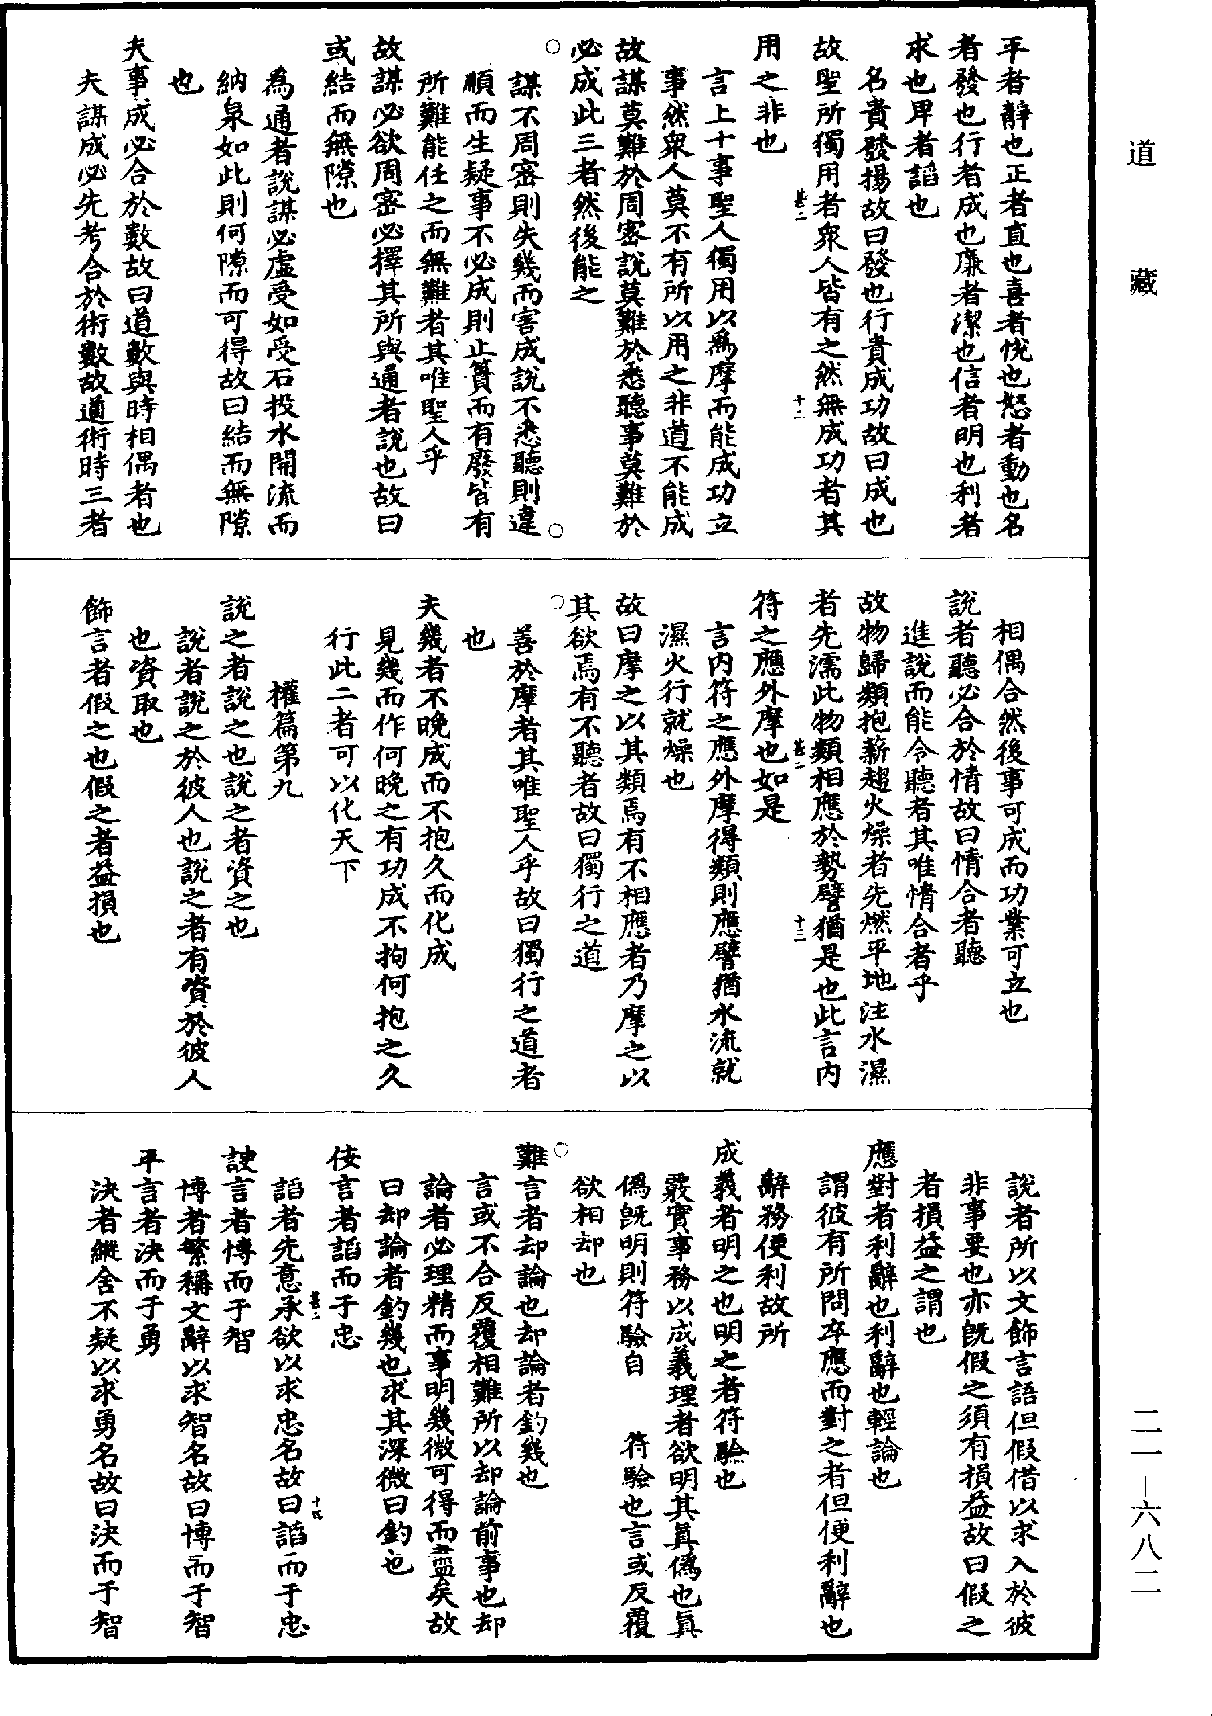 道藏
平者靜也正者直也喜者悅也怒者動也名
者發也行者成也廉者潔也信者明也利者
求也卑者謟也
名貴發揚故曰發也行貴成功故曰成也
故聖所獨用者衆人皆有之然無成功者其
用之非也
言上十事聖人獨用以爲摩而能成功立
事然衆人莫不有所以用之非道不能成
故謀莫難於周密說莫難於悉聽事莫難於
必成此三者然後能之
謀不周密則失幾而害成說不悉聽則違
順而生疑事不必成則止簣而有廢皆有
所難能任之而無難者其唯聖人乎
故謀必欲周密必擇其所與通者說也故曰
或結而無隙也
爲通者說謀必虛受如受石投水開流而
納泉如此則何隙而可得故曰結而無隙
也
夫事成必合於數故曰道數與時相偶者也
夫謀成必先考合於術數故道術時三者
相偶合然後事可成而功業可立也
說者聽必合於情故曰情合者聽
進說而能令聽者其唯情合者乎
故物歸類抱薪趨火燥者先燃平地注水濕
者先濡此物類相應於勢譬猶是也此言內
符之應外摩也如是
言內符之應外摩得類則應譬猶水流就
濕火行就燥也
故曰摩之以其類焉有不相應者乃摩之以
其欲焉有不聽者故曰獨行之道
善於摩者其唯聖人乎故曰獨行之道者
也
夫幾者不晚成而不抱久而化成
見幾而作何晚之有功成不拘何抱之久
行此二者可以化天下
權篇第九
說之者說之也說之者資之也
說者說之於彼人也說之者有資於彼人
也資取也
飾言者假之也假之者益損也
說者所以文飾言語但假借以求入於彼
非事要也亦旣假之須有損益故曰假之
者損益之謂也
應對者利辭也利辭也輕論也
謂彼有所問卒應而對之者但便利辭也
辭務便利故所
成義者明之也明之者符驗也
覈實事務以成義理者欲明其眞僞也眞
僞旣明則符驗自　符驗也言或反覆
欲相却也
難言者却論也却論者釣幾也
言或不合反覆相難所以却論前事也却
論者必理精而事明幾微可得而盡矣故
曰却論者釣幾也求其深微曰釣也
佞言者謟而于忠
謟者先意承欲以求忠名故曰謟而于忠
諛言者博而于智
博者繁稱文辭以求智名故曰博而于智
平言者決而于勇
決者縱舍不疑以求勇名故曰決而于智
二一—六八二